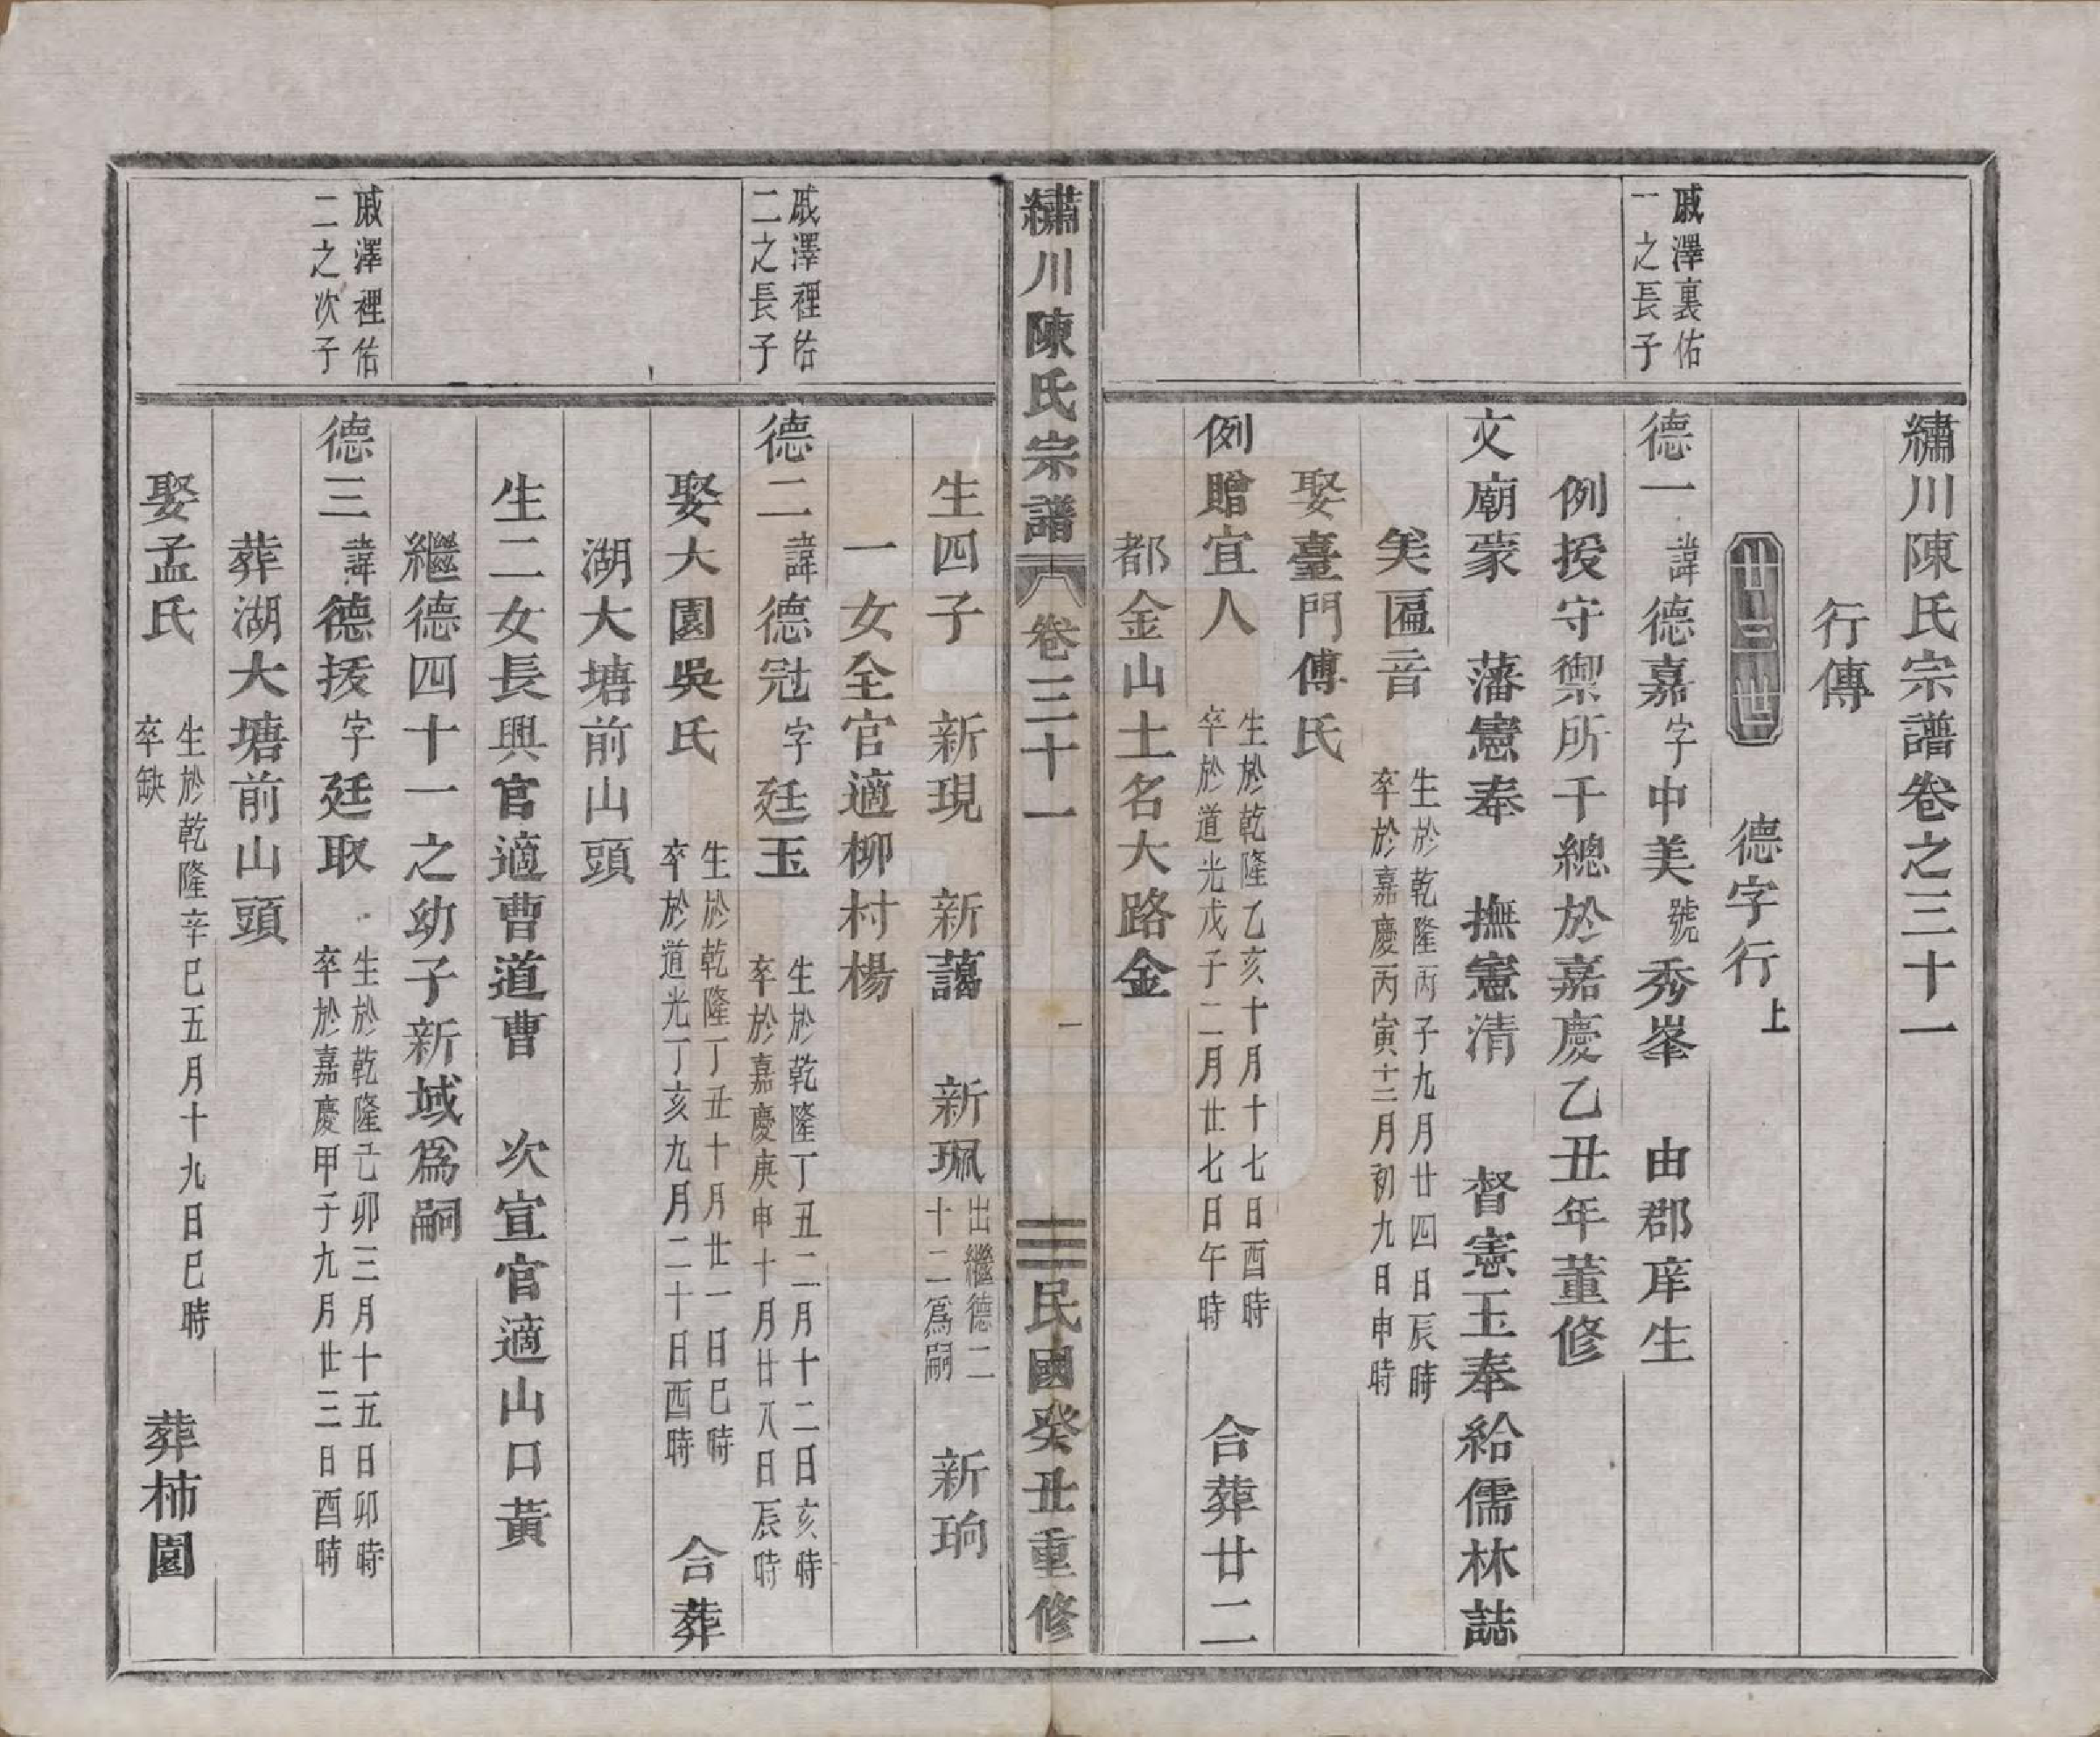 繡川陳氏宗譜卷之三十一
行傳
廿三世
德字行上
戚澤裏佑
一之長子
德一諱德嘉字中美號秀峯　由郡庠生
例授守禦所千總於嘉慶乙丑年董修
文廟蒙　藩憲奉　撫憲清　督憲玉奉給儒林誌
美匾音
生於乾隆丙子九月廿四日辰時
卒於嘉慶丙寅十二月初九日申時
娶臺門傅氏
例贈宜人
生於乾隆乙亥十月十七日酉時
卒於道光戊子二月廿七日午時
合葬廿二
都金山土名大路金
繡川陳氏宗譜
卷三十一
一
民國癸丑重修
生四子　新現　新藹　新珮
出繼德二
十二爲嗣
新珦
一女全官適柳村楊
戚澤裡佑
二之長子
德二諱德冠字廷玉
生於乾隆丁丑二月十二日亥時
卒於嘉慶庚申十月廿八日辰時
娶大園吳氏
生於乾隆丁丑十月廿一日巳時
卒於道光丁亥九月二十日酉時
合葬
湖大塘前山頭
生二女長興官適曹道曹　次宣官適山口黃
繼德四十一之幼子新域爲嗣
戚澤裡佑
二之次子
德三諱德授字廷取
生於乾隆己卯三月十五日卯時
卒於嘉慶甲子九月廿三日酉時
葬湖大塘前山頭
娶孟氏
生於乾隆辛巳五月十九日巳時
卒缺
葬柿園